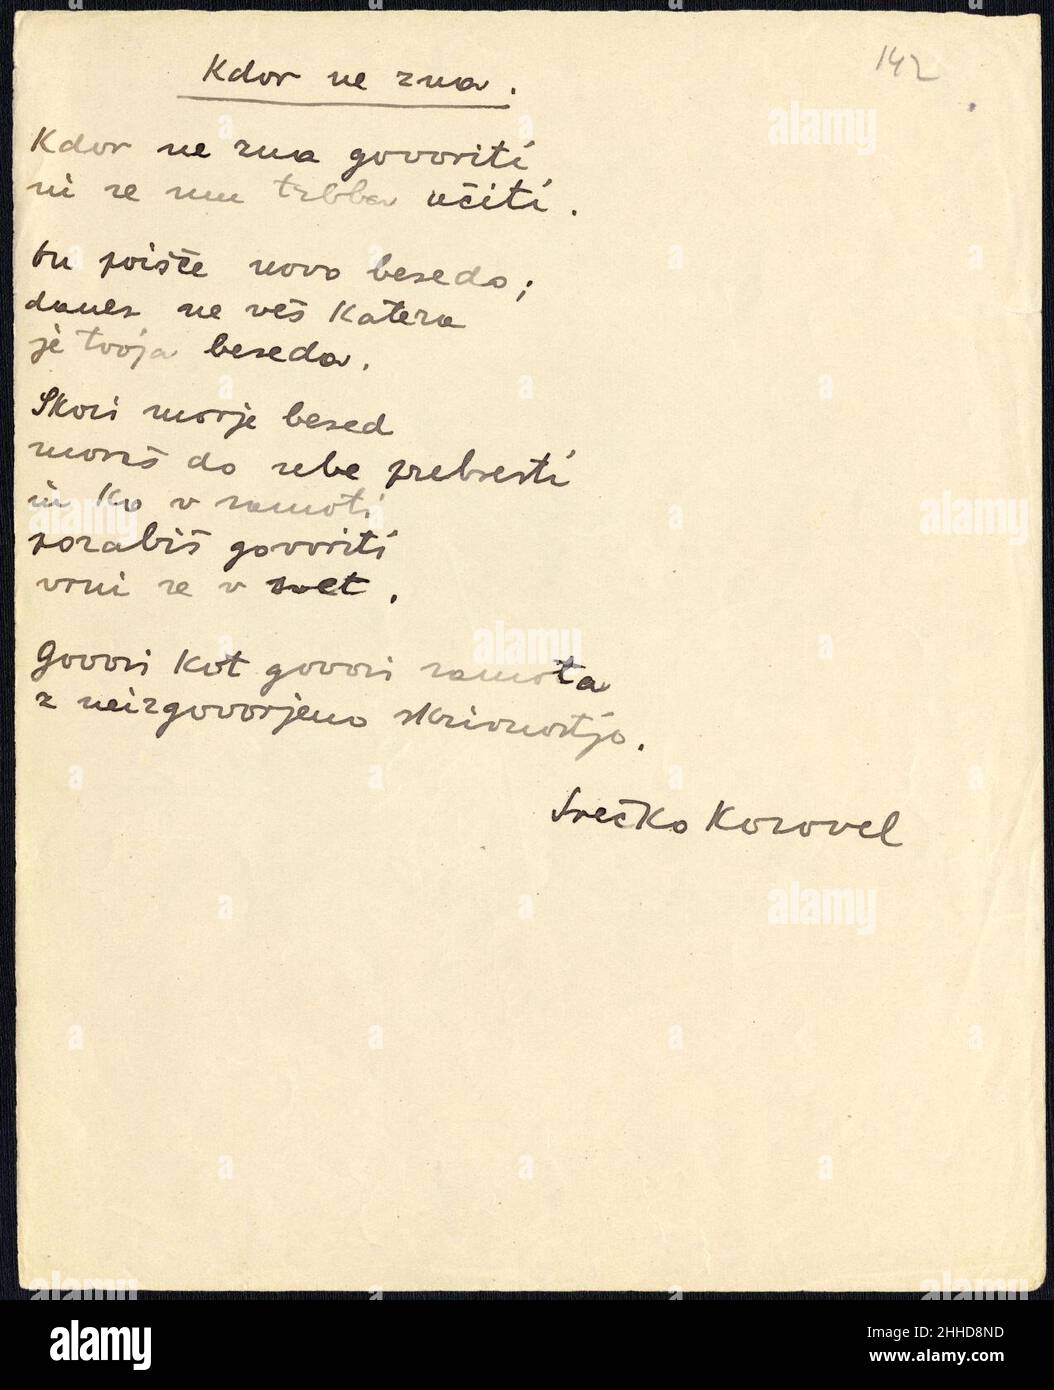 142
Kdor ne zna.
Kdor ne zna govoriti
ni se mu treba učiti.
tu poišče novo besedo;
danes ne veš katera
je tvoja beseda.
Skozi morje besed
moraš do sebe prebresti
in ko v samoti
pozabiš govoriti
vrni se v svet.
Govori kot govori samota
z neizgovorjeno skrivnostjo.
Srečko Kosovel
alamy
Image ID: 2HHD8ND
www.alamy.com